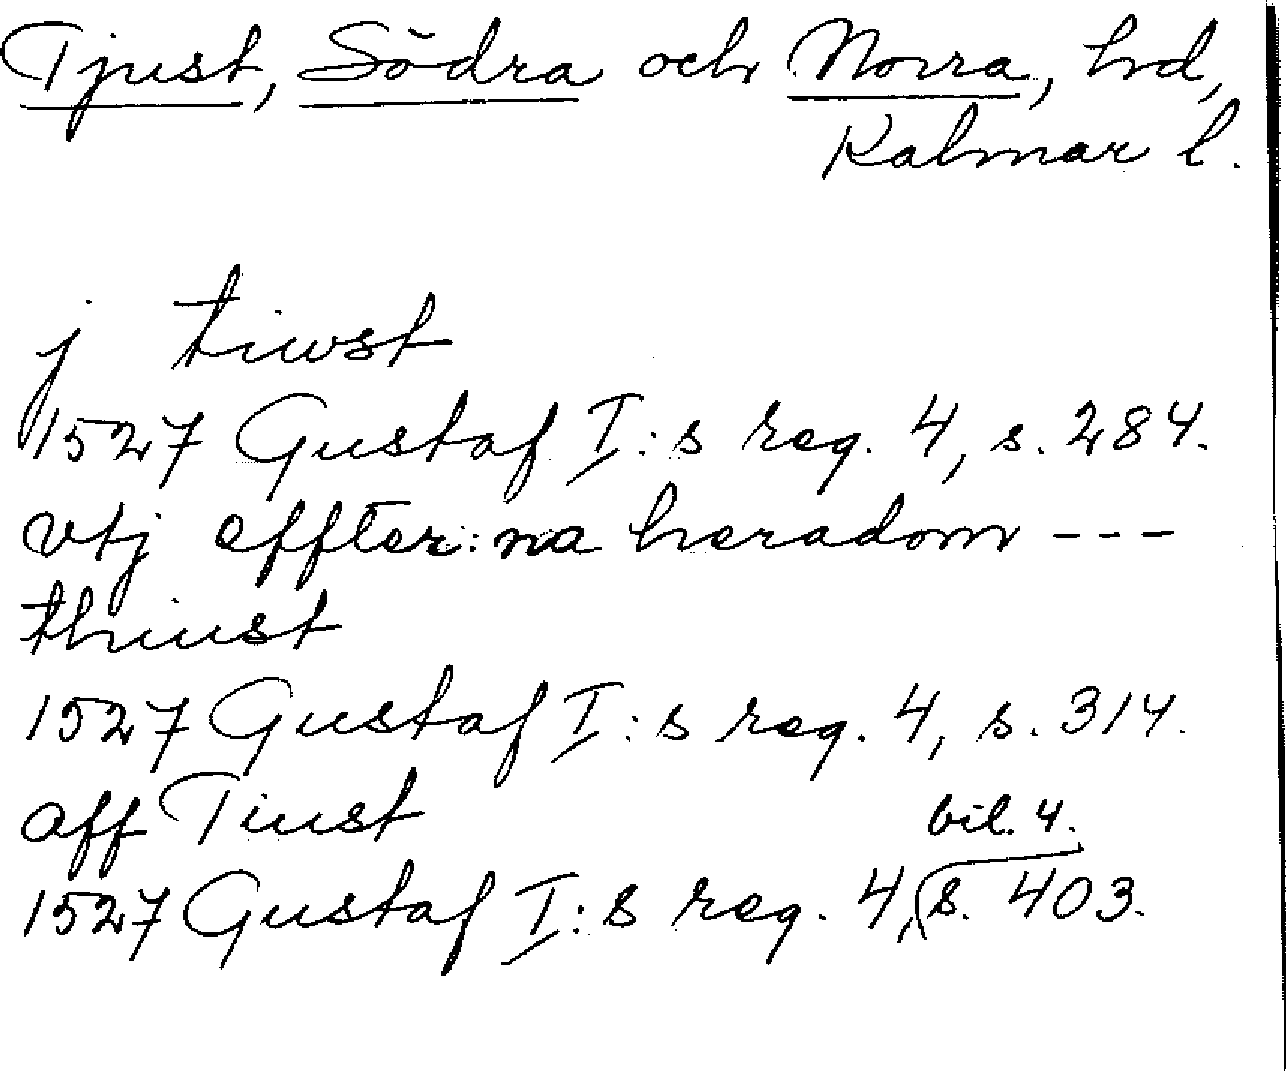 Tjust, Södra och Norra, hd,
Kalmar l.
j tiwst
1527 Gustaf I:s reg. 4, s. 284.
vtj effter:na heradom ---
thiust
1527 Gustaf I:s reg. 4, s. 314.
aff Tiust
1527 Gustaf I:s reg. 4, bil. 4. s. 403.